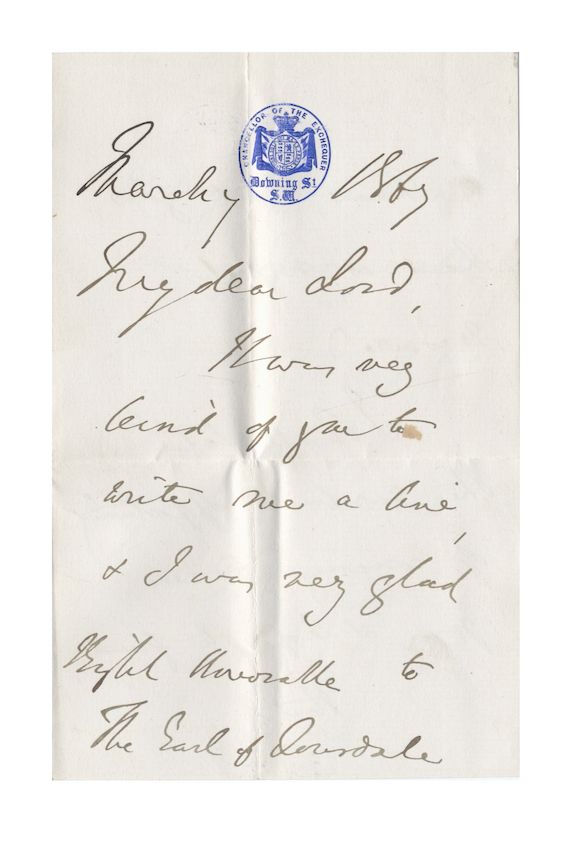 CHANCELLOR OF THE EXCHEQUER
Downing St
S.W.
March 1867
My dear Lord,
It was very
kind of you to
write me a line,
& I was very glad
Right Honorable to
The Earl of Lonsdale